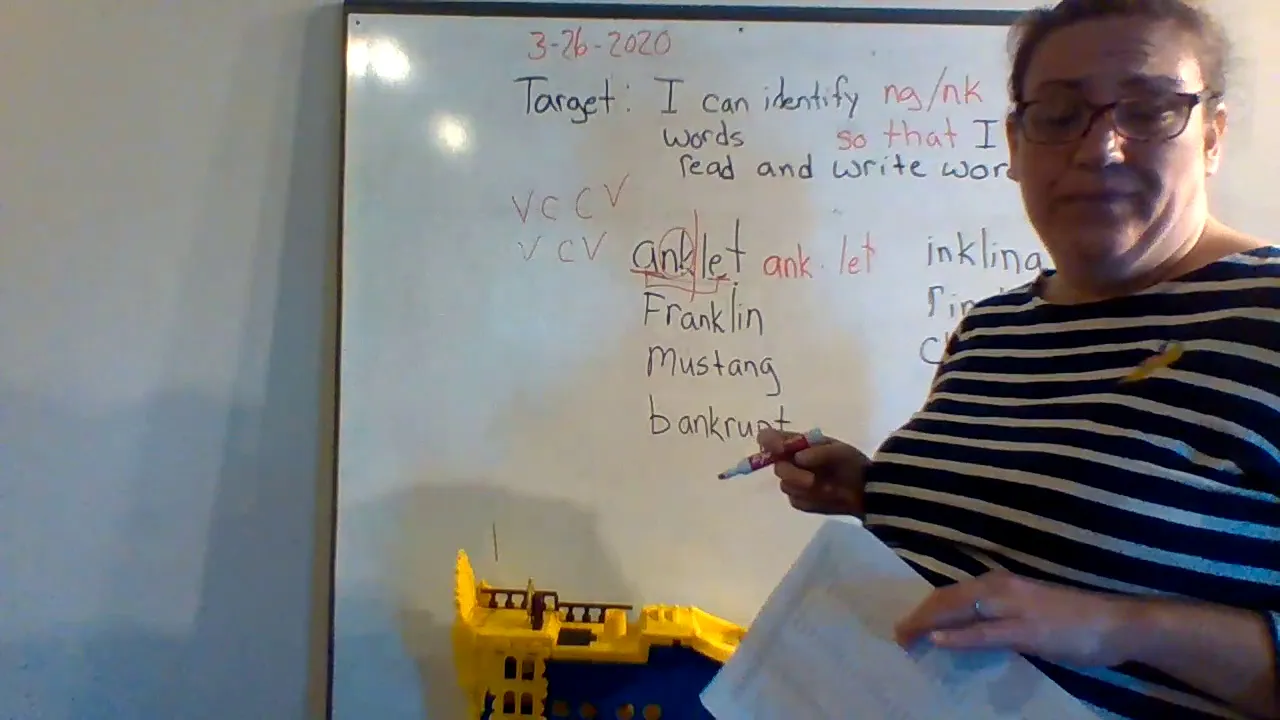 3-26-2020
Target: I can identify ng/nk
words so that I
read and write
V C C V
V C V anklet ank·let inkling
Franklin
Mustang
bankrupt